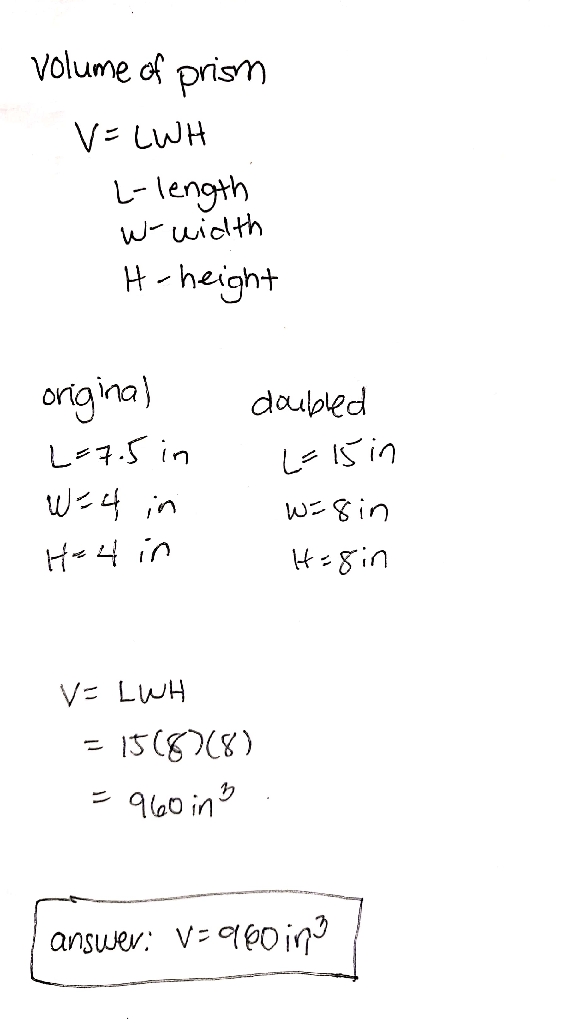 Volume of prism
V = LWH
L - length
W - width
H - height
original
L = 7.5 in
W = 4 in
H = 4 in
doubled
L = 15 in
W = 8 in
H = 8 in
V = LWH
= 15(8)(8)
= 960 in³
answer: V = 960 in³